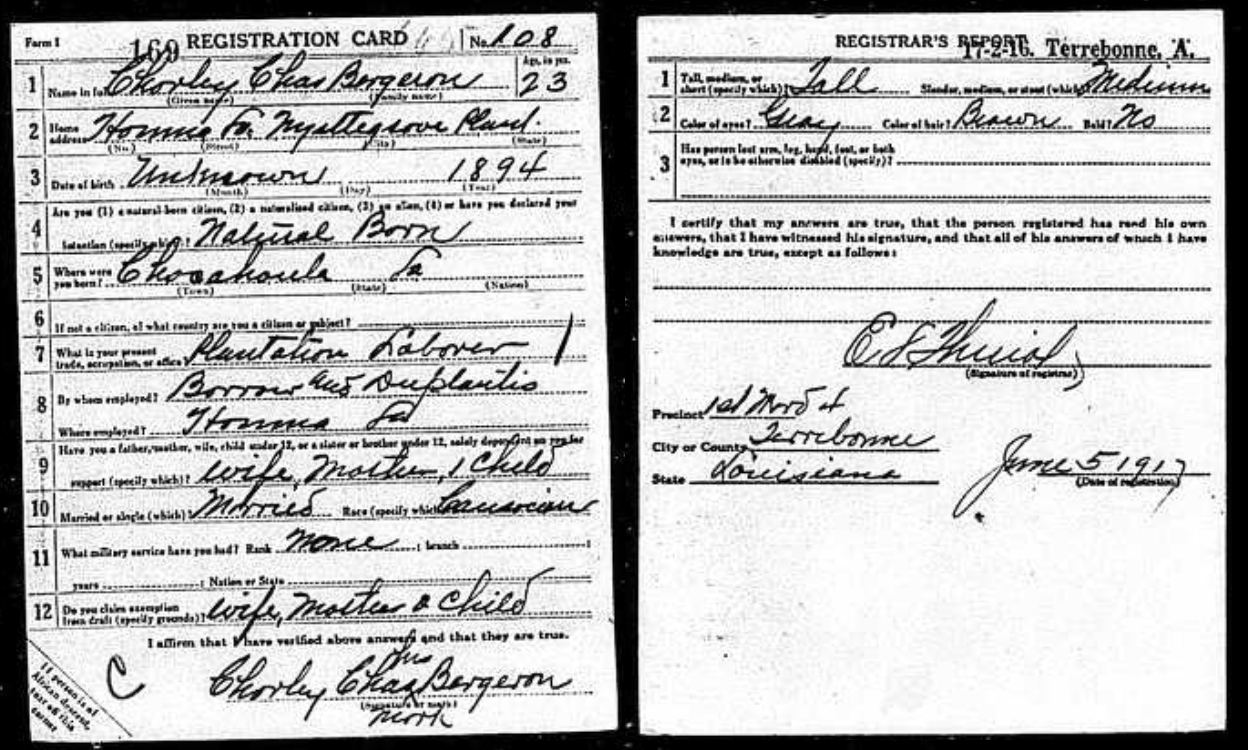 Form 1 169 REGISTRATION CARD No. 108
1 Name in full Chorley Chas Bergeron Age, in yrs. 23
(Given name) (Family name)
2 Home address Houma La. Myrtlegrove Plant.
(No.) (Street) (City) (State)
3 Date of birth Unknown 1894
(Month) (Day) (Year)
Are you (1) a natural-born citizen, (2) a naturalized citizen, (3) an alien, (4) or have you declared your
4 intention (specify which)? Natural Born
5 Where were you born? Chocahoula La
(Town) (State) (Nation)
6 If not a citizen, of what country are you a citizen or subject?
7 What is your present trade, occupation, or office? Plantation Laborer 1
8 By whom employed? and Duplantis
Where employed? Houma La
Have you a father, mother, wife, child under 12, or a sister or brother under 12, solely dependent on you for
9 support (specify which)? Wife, Mother, 1 Child
10 Married or single (which)? Married Race (specify which)? Caucasian
11 What military service have you had? Rank None ; branch ;
years ; Nation or State
12 Do you claim exemption from draft (specify grounds)? Wife, Mother & Child
I affirm that I have verified above answers and that they are true.
C
his
Chorley Chas Bergeron
(Signature or mark)
Mark
If person is of
African descent,
tear off this
corner
REGISTRAR'S REPORT 17-2-16. Terrebonne, A.
1 Tall, medium, or short (specify which)? Tall Slender, medium, or stout (which)? Medium
2 Color of eyes? Gray Color of hair? Brown Bald? No
3 Has person lost arm, leg, hand, foot, or both eyes, or is he otherwise disabled (specify)?
I certify that my answers are true, that the person registered has read his own
answers, that I have witnessed his signature, and that all of his answers of which I have
knowledge are true, except as follows:
(Signature of registrar)
Precinct 1st Ward 4
City or County Terrebonne
State Louisiana
June 5 1917
(Date of registration)